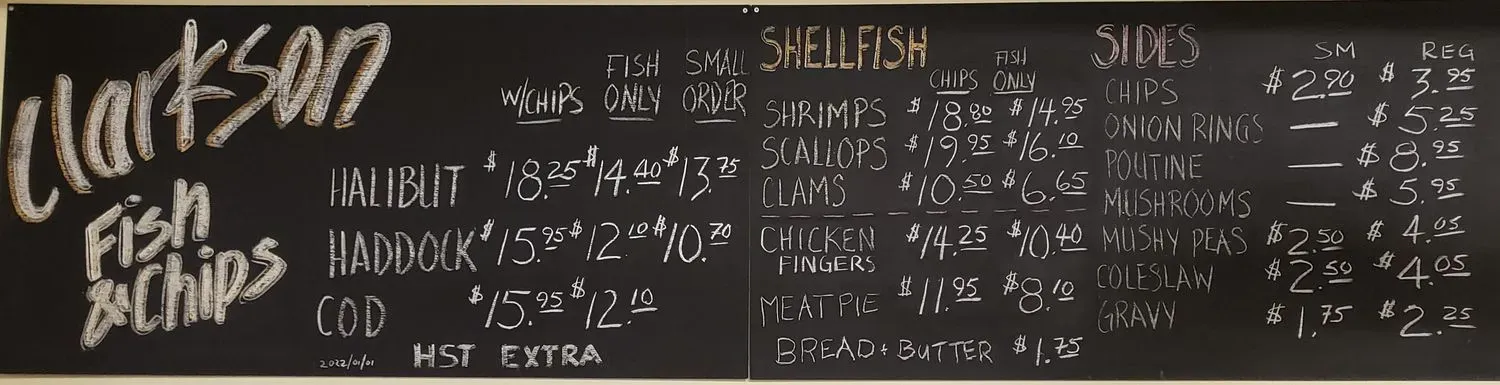 Clarkson
Fish
&Chips
W/CHIPS FISH ONLY SMALL ORDER
HALIBUT $18.25 $14.40 $13.75
HADDOCK $15.95 $12.10 $10.70
COD $15.95 $12.10
2022/01/01 HST EXTRA
SHELLFISH
CHIPS FISH ONLY
SHRIMPS $18.80 $14.95
SCALLOPS $19.95 $16.10
CLAMS $10.50 $6.65
CHICKEN FINGERS $14.25 $10.40
MEAT PIE $11.95 $8.10
BREAD + BUTTER $1.75
SIDES SM REG
CHIPS $2.90 $3.95
ONION RINGS — $5.25
POUTINE — $8.95
MUSHROOMS — $5.95
MUSHY PEAS $2.50 $4.05
COLESLAW $2.50 $4.05
GRAVY $1.75 $2.25